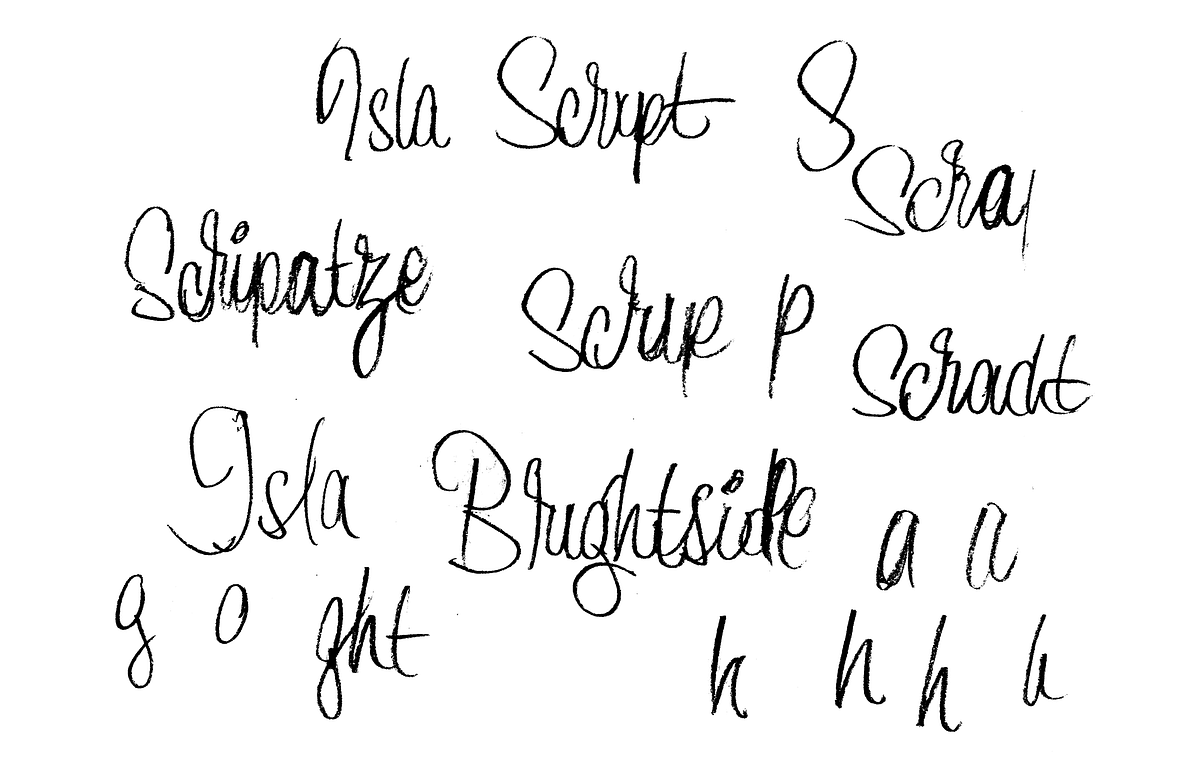 Isla Script S
Scra
Scripatze
Scrip p
Scradt
Isla Brightside a a
g o ght
h h h h